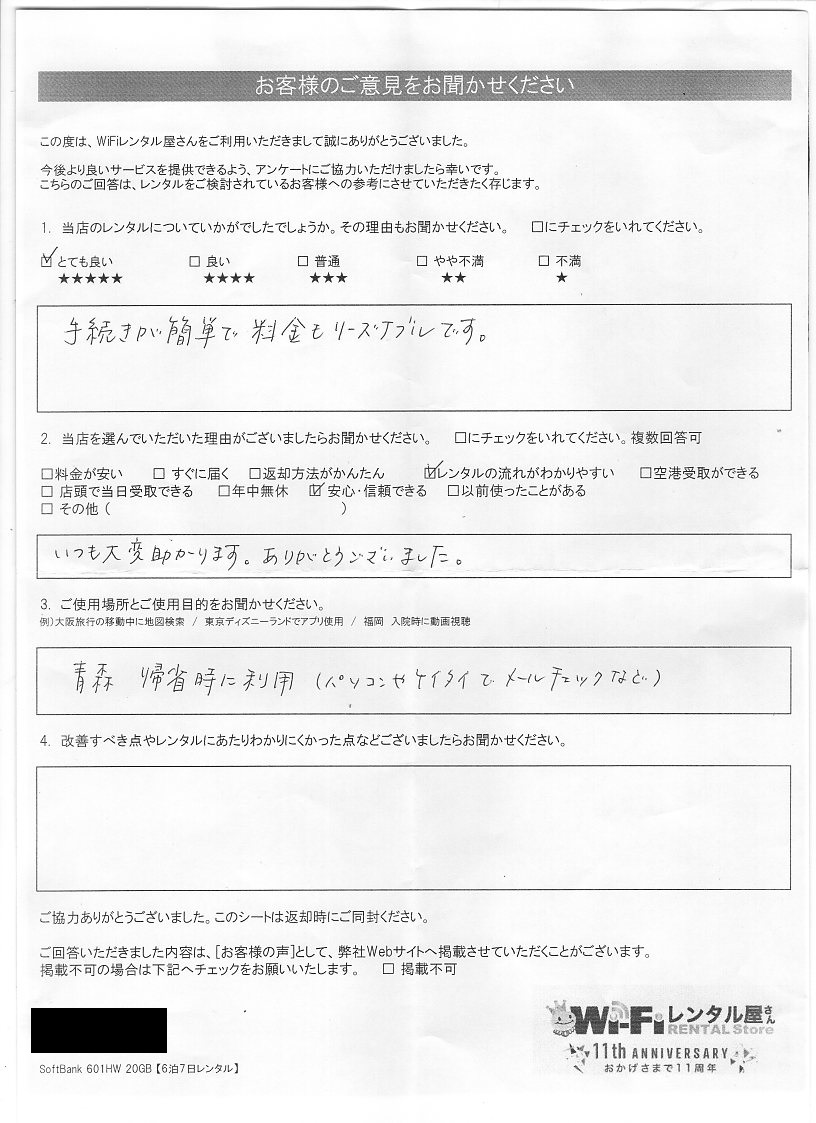 お客様のご意見をお聞かせください
この度は、WiFiレンタル屋さんをご利用いただきまして誠にありがとうございました。
今後より良いサービスを提供できるよう、アンケートにご協力いただけましたら幸いです。
こちらのご回答は、レンタルをご検討されているお客様への参考にさせていただきたく存じます。
1. 当店のレンタルについていかがでしたでしょうか。その理由もお聞かせください。 □にチェックをいれてください。
☑ とても良い □ 良い □ 普通 □ やや不満 □ 不満
★★★★★ ★★★★ ★★★ ★★ ★
手続きが簡単で料金もリーズナブルです。
2. 当店を選んでいただいた理由がございましたらお聞かせください。 □にチェックをいれてください。複数回答可
□料金が安い □ すぐに届く □返却方法がかんたん ☑レンタルの流れがわかりやすい □空港受取ができる
□ 店頭で当日受取できる □年中無休 ☑ 安心・信頼できる □以前使ったことがある
□ その他 ( )
いつも大変助かります。ありがとうございました。
3. ご使用場所とご使用目的をお聞かせください。
例)大阪旅行の移動中に地図検索 / 東京ディズニーランドでアプリ使用 / 福岡 入院時に動画視聴
青森 帰省時に利用 (パソコンやケイタイでメールチェックなど)
4. 改善すべき点やレンタルにあたりわかりにくかった点などございましたらお聞かせください。
ご協力ありがとうございました。このシートは返却時にご同封ください。
ご回答いただきました内容は、[お客様の声]として、弊社Webサイトへ掲載させていただくことがございます。
掲載不可の場合は下記へチェックをお願いいたします。 □ 掲載不可
Wi-Fiレンタル屋さん
RENTAL Store
11th ANNIVERSARY
おかげさまで11周年
SoftBank 601HW 20GB【6泊7日レンタル】